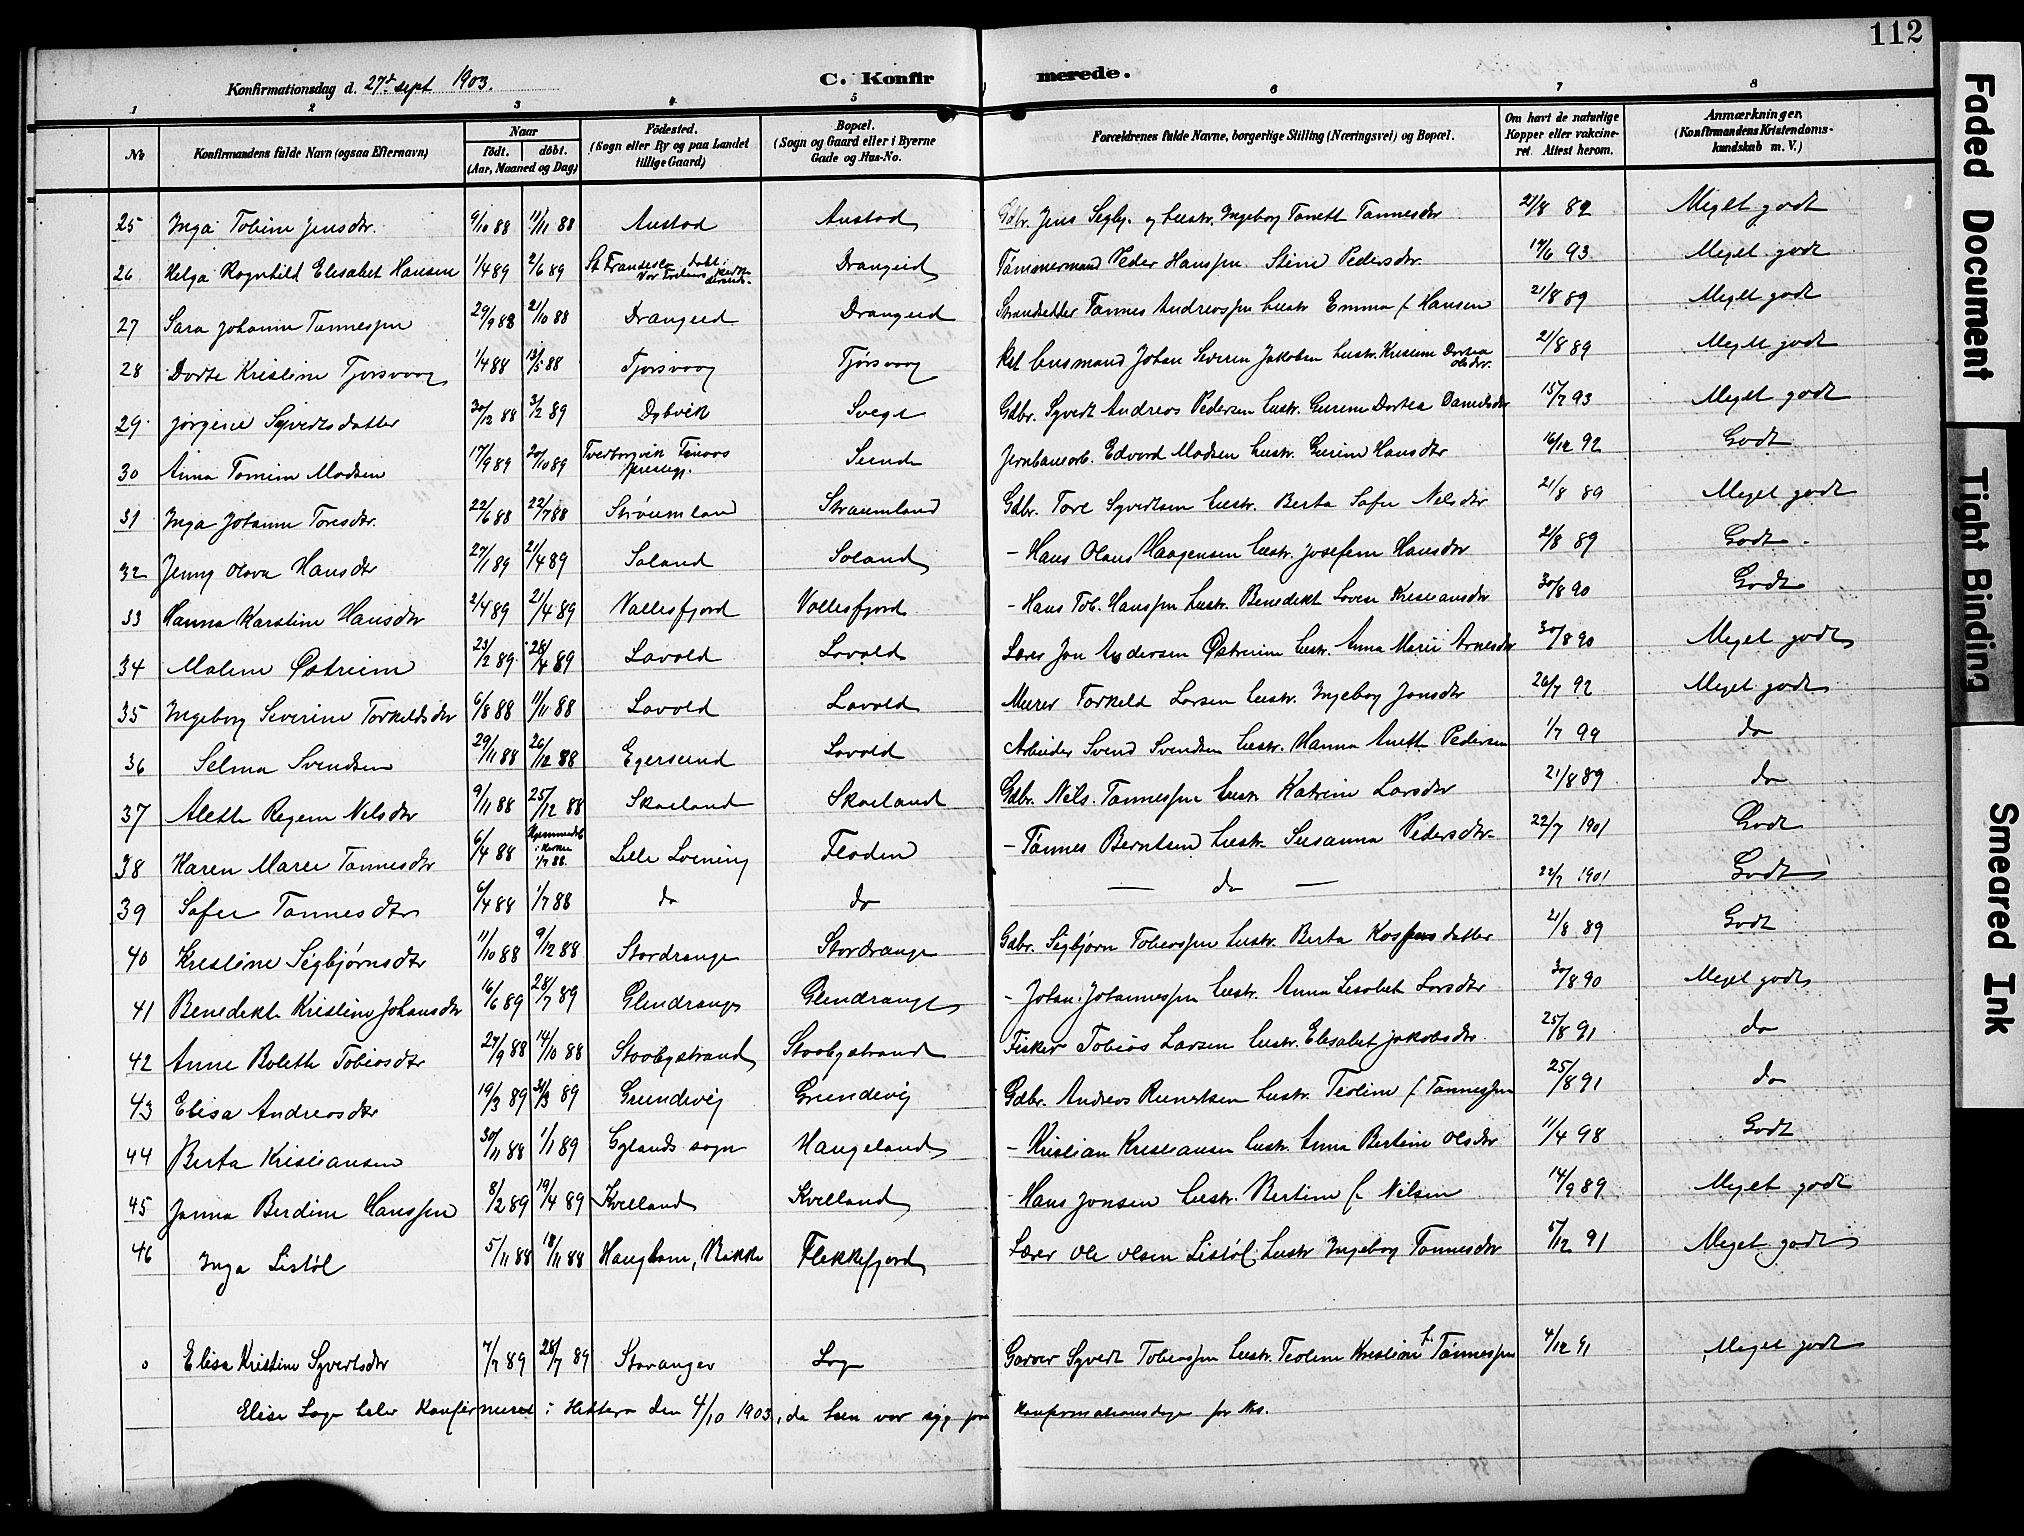 112
Konfirmationsdag d. 27de sept 1903.
C. Konfirmerede.
1 2 3 4 5 6 7 8
No
Konfirmandens fulde Navn (ogsaa Efternavn)
Naar
født. døbt.
(Aar, Maaned og Dag)
Fødested.
(Sogn eller By og paa Landet
tillige Gaard)
Bopæl.
(Sogn og Gaard eller i Byerne
Gade og Hus-No.
Forældrenes fulde Navne, borgerlige Stilling (Næringsvei) og Bopæl.
Om havt de naturlige
Kopper eller vakcine-
ret. Attest herom.
Anmærkninger.
(Konfirmandens Kristendoms-
kundskab m. V.)
25 Inga Tobine Jensdtr. 9/10 88 11/11 88 Austad Austad Gdbr. Jens Sigbj. og hustr. Ingeborg Tonette Tonnesdtr 21/8 89 Meget godt
26 Helga Ragnhild Elisabet Hansen 1/4 89 2/6 89 Drangeid Tømmermand Peder Hanssen Stine Pedersdtr 17/6 93 Meget godt
27 Sara Johanne Tønnessen 29/9 88 21/10 88 Drangeid Drangeid Strandsidder Tønnes Andreassen hustr Emma f. Hansen 21/8 89 Meget godt
28 Dorte Kristine Tjørsvaag 1/4 88 13/5 88 Tjorsvaag Tjørsvaag Johan Severin Jakobsen hustr. Kristine Dortea Olsdtr. 21/8 89 Meget godt
29 Jørgine Syvertsdatter 30/12 88 3/2 89 Dybvik Svege Gdbr. Syvert Andreas Pedersen hustr. Gurine Dortea Danielsdtr 15/7 93 Meget godt
30 Anna Tomine Madsen 17/9 89 20/10 89 Sunde Jernbanearb. Edvard Madsen hustr. Gurine Hansdtr 16/12 92 Godt
31 Inga Johanne Toresdtr. 22/6 88 22/7 88 Straumland Straumland Gdbr. Tore Syvertsen hustr. Berta Sofie Nilsdtr 21/8 89 Meget godt
32 Jenny Olava Hansdtr 27/1 89 21/4 89 Soland Soland - Hans Olaus Haagensen hustr. Josefine Hansdtr 21/8 89 Godt
33 Hanna Karstine Hansdtr 2/4 89 21/4 89 Vollesfjord Vollesfjord - Hans Tob. Hanssen hustr. Benedikte Lovise Kristiansdtr 30/8 90 Godt
34 Maline Østreim 23/2 89 28/4 89 Lavold Lavold Lærer Jon Andersen Østreim hustr. Anna Marie Arnesdtr 30/8 90 Meget godt
35 Ingeborg Severine Torkeldsdtr 6/8 88 11/11 88 Lavold Lavold Murer Torkeld Larsen hustr. Ingeborg Jonsdtr 26/7 92 Meget godt
36 Selma Svendsen 29/11 88 26/12 88 Egersund Lavold Arbeider Svend Svendsen hustr. Hanna Anette Pedersen 1/7 99 do
37 Alette Regine Nilsdtr 9/11 88 25/12 88 Skoeland Skoeland Gdbr. Nils Tønnessen hustr Katrine Larsdtr 21/8 89 do
38 Karen Marie Tønnesdtr 6/4 88 Hjemmedøbt i kirken 1/7 88. Lille Løining Floden - Tønnes Berntsen hustr. Susanna Pedersdtr. 22/7 1901 Godt
39 Sofie Tønnesdtr 6/4 88 1/7 88 do do — do — 22/7 1901 Godt
40 Kristine Sigbjørnsdtr 11/10 88 9/12 88 Stordrange Stordrange Gdbr. Sigbjørn Tobiassen hustr. Berta Kaspersdatter 21/8 89 Godt
41 Benedikte Kristine Johansdtr 16/6 89 28/7 89 Glendrange Glendrange - Johan Johannessen hustr. Anna Lisabet Larsdtr 30/8 90 Meget godt
42 Anne Bolette Tobiasdtr 27/9 88 14/10 88 Stoobystrand Stoobystrand Fisker Tobias Larsen hustr. Elisabet Jakobsdtr. 25/8 91 do
43 Elisa Andreasdtr 19/3 89 31/3 89 Grundevig Grundevig Gdbr. Andreas Reinertsen hustr. Teoline f. Tønnessen 25/8 91 do
44 Berta Kristiansen 30/11 88 1/1 89 Gylands sogn Haugeland - Kristian Kristiansen hustr. Anna Bertine Olsdtr 11/4 98 Godt
45 Janna Berdine Hanssen 8/2 89 19/4 89 Kvelland Kvelland - Hans Jonsen hustr. Bertine f. Nilsen 14/9 89 Meget godt
46 Inga Listøl 5/11 88 18/11 88 Haugham, Bakke Flekkefjord Lærer Ole Olsen Listøl hustr Ingeborg Tønnesdtr 5/12 91 Meget godt
0 Elisa Kristine Syvertsdtr 7/7 89 28/7 89 Stavanger Loge Garver Syvert Tobiassen hustr. Teoline Kristine f. Tønnessen 4/12 91 Meget godt
Elise Loge blev konfirmeret i Hitterø den 4/10 1903, da hun var syg paa konfirmationsdagen
Faded Document
Tight Binding
Smeared Ink